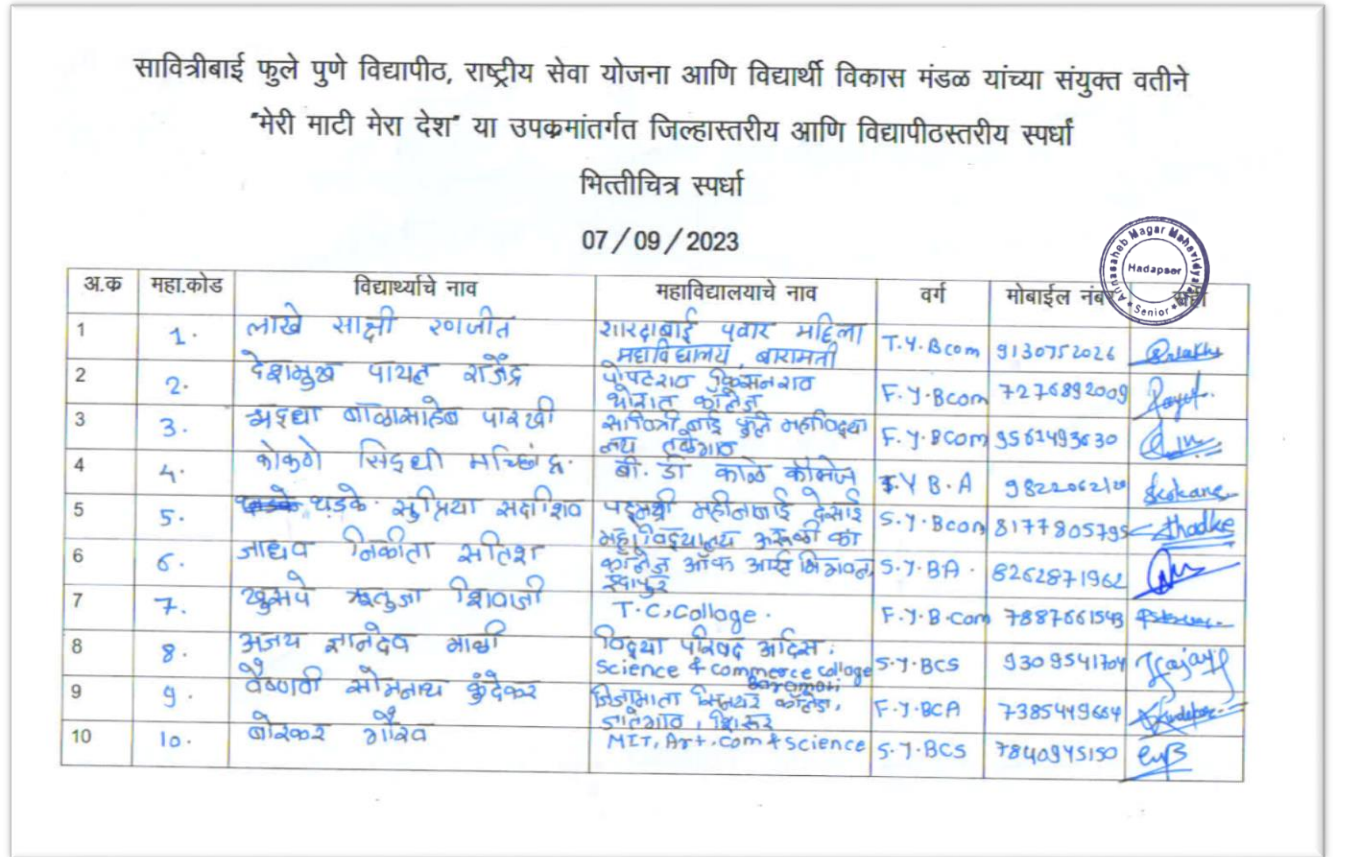 सावित्रीबाई फुले पुणे विद्यापीठ, राष्ट्रीय सेवा योजना आणि विद्यार्थी विकास मंडळ यांच्या संयुक्त वतीने
"मेरी माटी मेरा देश" या उपक्रमांतर्गत जिल्हास्तरीय आणि विद्यापीठस्तरीय स्पर्धा
भित्तीचित्र स्पर्धा
07/09/2023
Annasaheb Magar Mahavidyalaya Hadapsar Senior
अ.क महा.कोड विद्यार्थ्याचे नाव महाविद्यालयाचे नाव वर्ग मोबाईल नंबर सही
1 1. लाखे साक्षी रणजीत शारदाबाई पवार महिला महाविद्यालय, बारामती T.Y.Bcom 9130752026
2 2. देशमुख पायल राजेंद्र पोपटराव किसनराव थोरात कॉलेज F.Y.Bcom 7276892009
3 3. बाळासाहेब पारखी सावित्रीबाई फुले महाविद्यालय F.Y.BCom 9561493630
4 4. कोकणे सिद्धी मच्छिंद्र. बी. डी काळे कॉलेज F.Y B.A
5 5. थडके. सुप्रिया सदाशिव पद्मश्री देसाई महाविद्यालय S.Y.Bcom 8177805795 Thadke
6 6. जाधव निकीता सतिश कॉलेज ऑफ इंदापूर S.Y.BA. 8262871962
7 7. ऋतुजा शिवाजी T.C, Colloge. F.Y.B.Com 7887661543
8 8. अजय ज्ञानदेव माळी विद्या Science & commerce colloge Baramati S.Y.BCS 9309541704
9 9. वैष्णवी सोमनाथ कुंदेकर जिजामाता कॉलेज, शिरूर F.Y.BCA 7385449664
10 10. बोरकर गौरव MIT, Art, Com & Science S.Y.BCS 7840945150